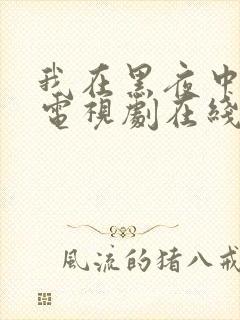 我在黑夜中
電視劇在綫
風流的猪八戒